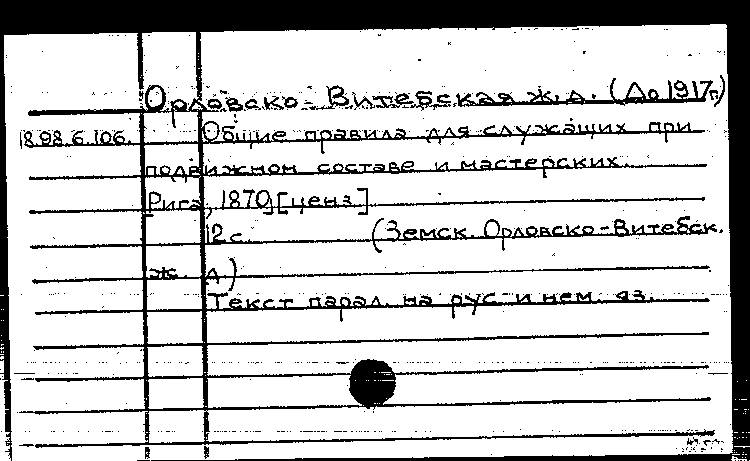 Орловско-Витебская ж.д. (До 1917г.)
18.98.6.106. Общие правила для служащих при
подвижном составе и мастерских.
Рига, 1870, [ценз.]
12 с. (Земск. Орловско-Витебск.
ж. д.)
Текст парал. на рус. и нем. яз.